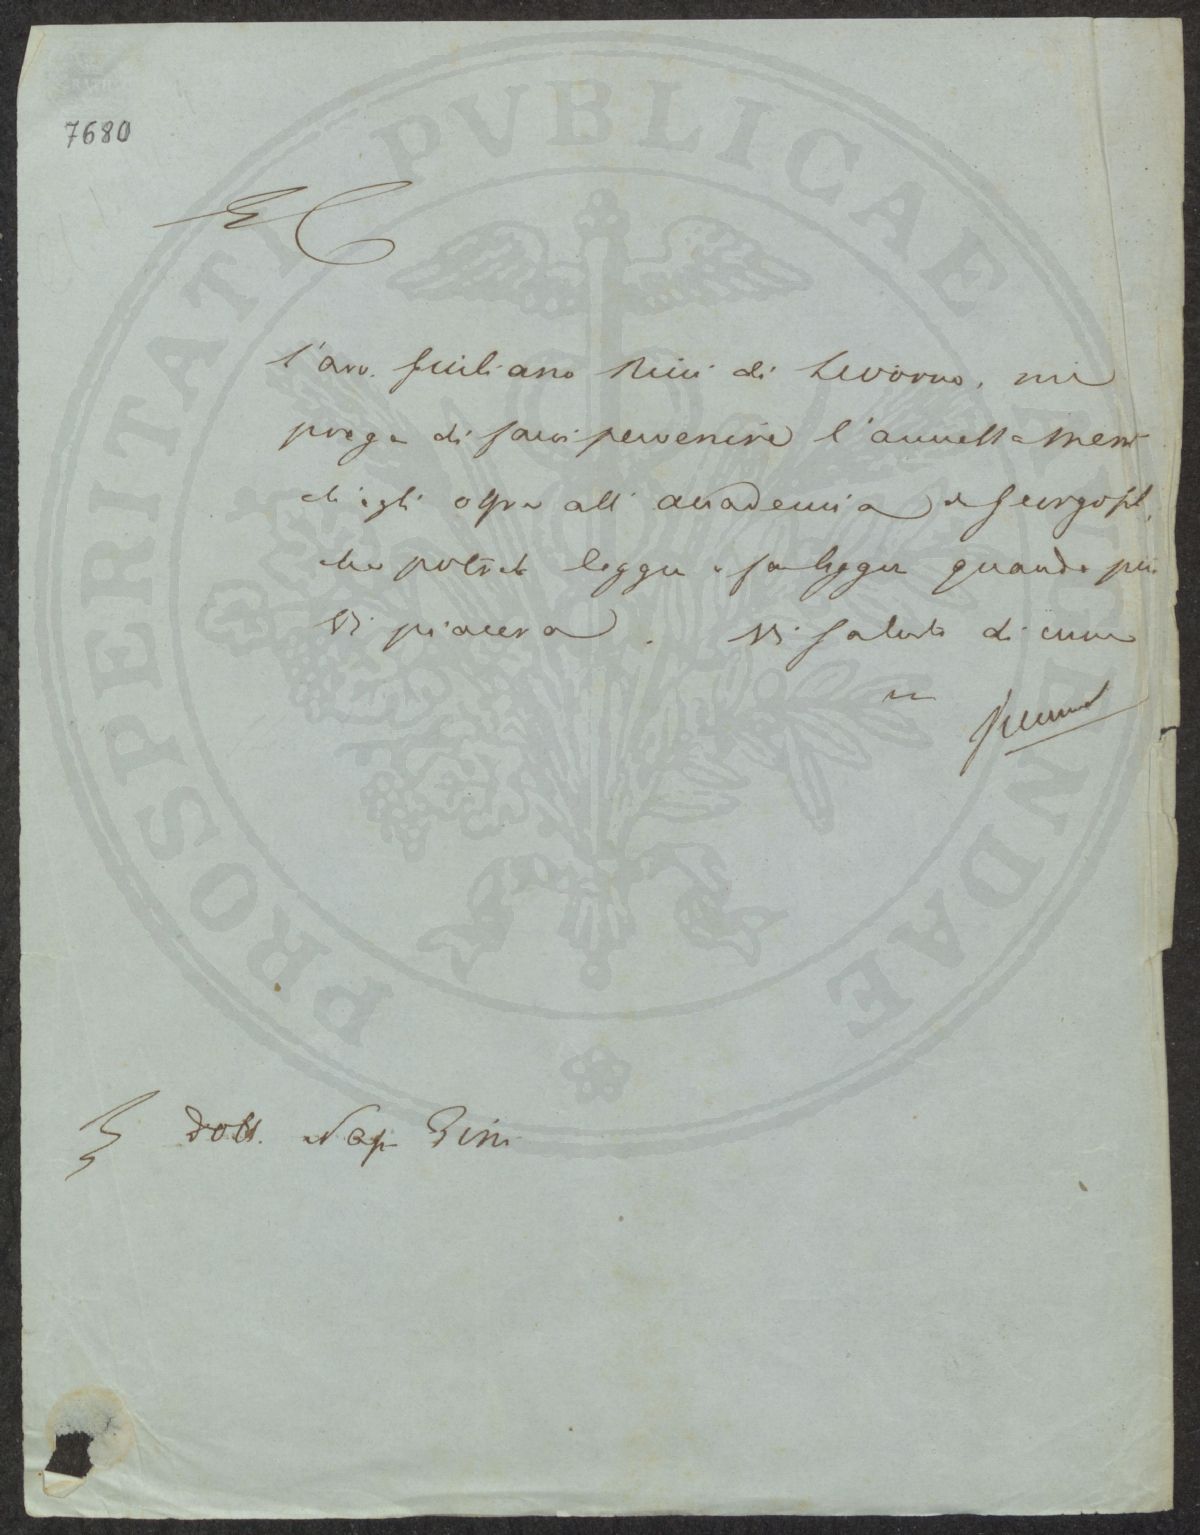 7680
EC
L'avv. Giuliano Ricci di Livorno, mi
prega di farvi pervenire l'annessa Mem.
ch'egli offre all'accademia de Georgofil.
che potrete leggere o far leggere quando più
vi piacerà. Vi saluto di cuore
Dott. Nap Pini
PROSPERITATI PVBLICAE AVGENDAE